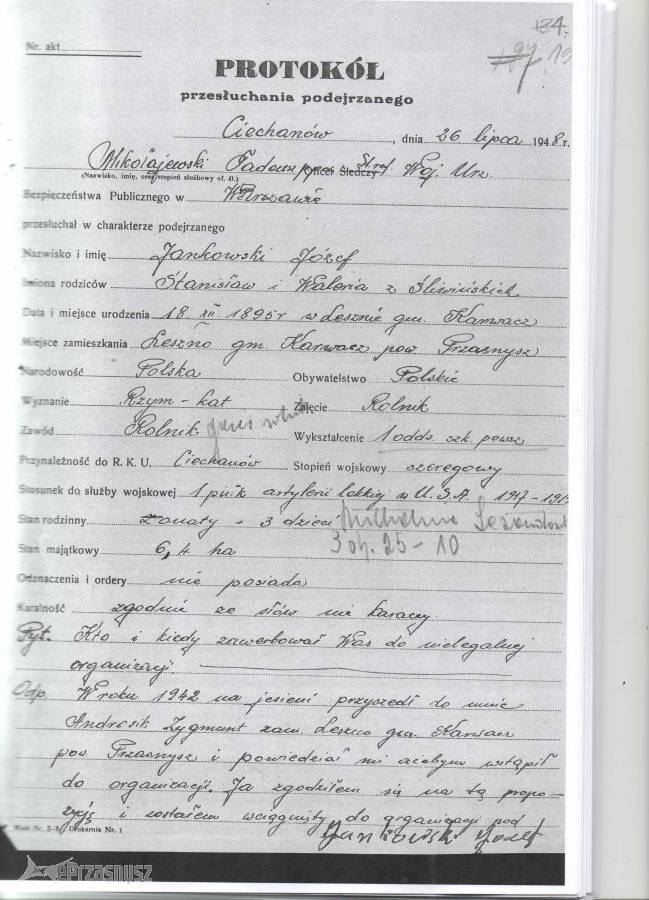 24.
97 19
Nr. akt
PROTOKÓŁ
przesłuchania podejrzanego
Ciechanów, dnia 26 lipca 1948 r.
Mikołajewski Tadeusz oficer Śledczy Woj. Urz.
(Nazwisko, imię, oraz stopień służbowy of. śl.)
Bezpieczeństwa Publicznego w Warszawie
przesłuchał w charakterze podejrzanego
Nazwisko i imię Jankowski Józef
Imiona rodziców Stanisław i Waleria z Śliwińskich
Data i miejsce urodzenia 18. XII. 1895 r w Lesznie gm. Karwacz
Miejsce zamieszkania Leszno gm. Karwacz pow Przasnysz
Narodowość Polska Obywatelstwo Polskie
Wyznanie Rzym-kat Zajęcie Rolnik
Zawód Rolnik Wykształcenie 1 oddz. szk. powsz
Przynależność do R. K. U. Ciechanów Stopień wojskowy szeregowy
Stosunek do służby wojskowej 1 pułk artylerii lekkiej w U.S.A 1917-191
Stan rodzinny żonaty - 3 dzieci
Stan majątkowy 6,4 ha 3 dz. 25-10
Odznaczenia i ordery nie posiada
Karalność zgodnie ze słów nie karany
Pyt. Kto i kiedy zawerbował Was do nielegalnej
organizacji.
Odp. W roku 1942 na jesieni przyszedł do mnie
Androsik Zygmunt zam. Leszno gm. Karwacz
pow. Przasnysz i powiedział mi ażebym wstąpił
do organizacji. Ja zgodziłem się na tą propo-
zycję i zostałem wciągnięty do organizacji pod
Drukarnia Nr. 1 Jankowski Józef
ePrzasnysz